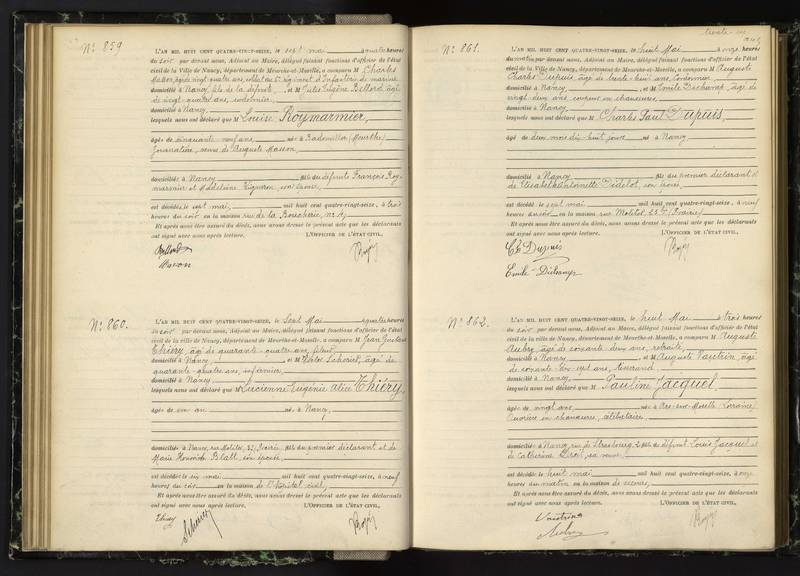 N° 859
L'AN MIL HUIT CENT QUATRE-VINGT-SEIZE, le sept mai à quatre heures
du soir par devant nous, Adjoint au Maire, délégué faisant fonctions d'officier de l'état
civil de la Ville de Nancy, département de Meurthe-et-Moselle, a comparu M Charles
Masson, âgé de vingt quatre ans, soldat au régiment d'Infanterie de marine
domicilié à Nancy, fils de la défunte, et M Jules Eugène Billord âgé
de vingt quatre ans,
domicilié à Nancy
lesquels nous ont déclaré que M Louise Roymarmier,
âgée de cinquante neuf ans née à Badonviller (Meurthe)
Journalière, veuve de Auguste Masson
domiciliée à Nancy fille de défunts François Roy-
marmier et Madeleine Vigneron, son épouse
est décédée le sept mai, mil huit cent quatre-vingt-seize, à trois
heures du soir en la maison rue de la Boucherie, n°
Et après nous être assuré du décès, nous avons dressé le présent acte que les déclarants
ont signé avec nous après lecture. L'OFFICIER DE L'ÉTAT CIVIL,
Billord
Masson
N° 860.
L'AN MIL HUIT CENT QUATRE-VINGT-SEIZE, le Sept Mai à quatre heures
du soir par devant nous, Adjoint au Maire, délégué faisant fonctions d'officier de l'état
civil de la Ville de Nancy, département de Meurthe-et-Moselle, a comparu M Jean Gustave
Thiéry, âgé de quarante-quatre ans,
domicilié à Nancy et M Victor Scherier, âgé de
quarante-quatre ans, infirmier
domicilié à Nancy
lesquels nous ont déclaré que M Lucienne Eugénie Alice Thiéry,
âgée de un an née à Nancy,
domiciliée à Nancy, rue Molitor, fille du premier déclarant et de
Marie Blatt, son épouse
est décédée le six mai mil huit cent quatre-vingt-seize, à neuf
heures du soir en la maison de l'hôpital civil,
Et après nous être assuré du décès, nous avons dressé le présent acte que les déclarants
ont signé avec nous après lecture. L'OFFICIER DE L'ÉTAT CIVIL,
Thiery
N° 861.
L'AN MIL HUIT CENT QUATRE-VINGT-SEIZE, le huit Mai à onze heures
du matin par devant nous, Adjoint au Maire, délégué faisant fonctions d'officier de l'état
civil de la Ville de Nancy, département de Meurthe-et-Moselle, a comparu M Auguste
Charles Dupuis, âgé de trente huit ans, Cordonnier
domicilié à Nancy et M Emile Dichamp, âgé de
vingt deux ans, coupeur en chaussures
domicilié à Nancy
lesquels nous ont déclaré que M Charles Paul Dupuis,
âgé de deux mois dix huit jours né à Nancy
domicilié à Nancy fils du premier déclarant et
de Elisabeth Antoinette Didelot, son épouse
est décédé le sept mai mil huit cent quatre-vingt-seize, à neuf
heures du soir en la maison rue Molitor, (Prairie)
Et après nous être assuré du décès, nous avons dressé le présent acte que les déclarants
ont signé avec nous après lecture. L'OFFICIER DE L'ÉTAT CIVIL,
Dupuis
Emile Dichamp
N° 862.
L'AN MIL HUIT CENT QUATRE-VINGT-SEIZE, le huit Mai à trois heures
du soir par devant nous, Adjoint au Maire, délégué faisant fonctions d'officier de l'état
civil de la Ville de Nancy, département de Meurthe-et-Moselle, a comparu M Auguste
Aubry, âgé de soixante deux ans, retraité
domicilié à Nancy et M Auguste Vautrin, âgé
de soixante-dix-sept ans, tisserand
domicilié à Nancy
lesquels nous ont déclaré que M Pauline Jacquel,
âgée de vingt ans née à Ars-sur-Moselle (Lorraine)
Ouvrière en chaussures, célibataire
domiciliée à Nancy, rue de Strasbourg, fille de défunt Louis Jacquel et
de Catherine sa veuve
est décédée le huit mai mil huit cent quatre-vingt-seize, à onze
heures du matin en la maison de secours,
Et après nous être assuré du décès, nous avons dressé le présent acte que les déclarants
ont signé avec nous après lecture. L'OFFICIER DE L'ÉTAT CIVIL,
Vautrin
Aubry